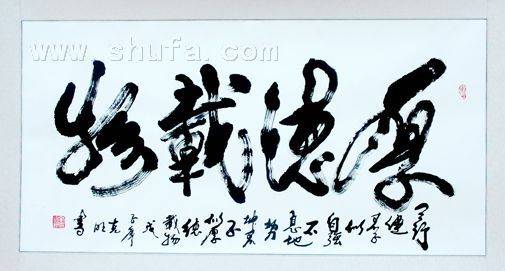 www.shufa.com
厚德載物
天行健君子以自強不息地勢坤君子以厚德載物戊子年
書